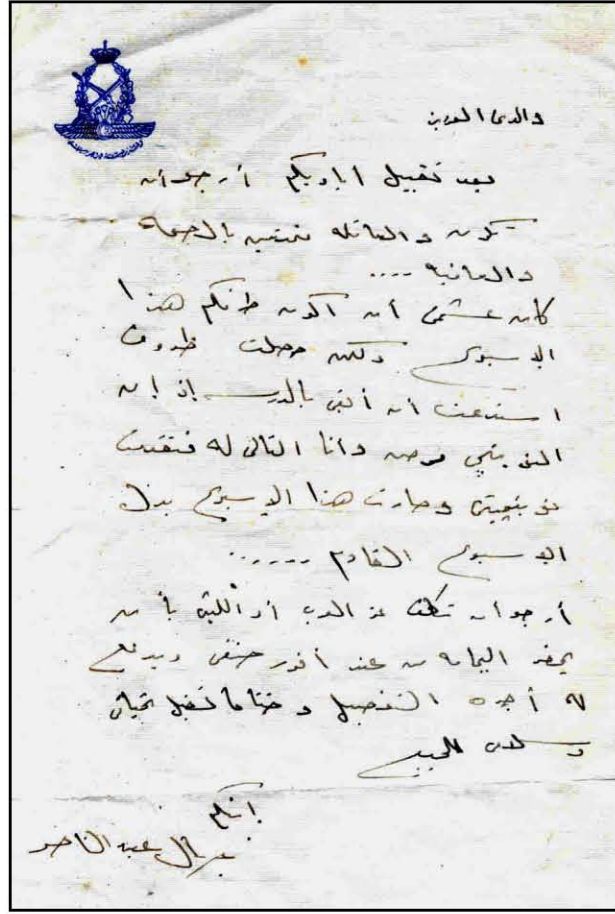 والدى العزيز
بعد تقبيل اياديكم أرجو أن
تكون والعائله متمتعين بالصحة
والعافيه ....
كان عشمى أن أكون طرفكم هذا
الاسبوع ولكن حصلت ظروف
استدعت أن أبقى بالمدرسة إذ إن
مرض وأنا التالى له فتقدمت
نوبتجيتى وصارت هذا الاسبوع بدل
الاسبوع القادم ......
أرجو أن تكلف عز العرب أو الليثى بأن
يحضر البدله من عند أنور حنفى ويدفع
له أجرة التفصيل وختاما تقبل تحياتى
وسلامى للجميع
إبنكم
جمال عبد الناصر